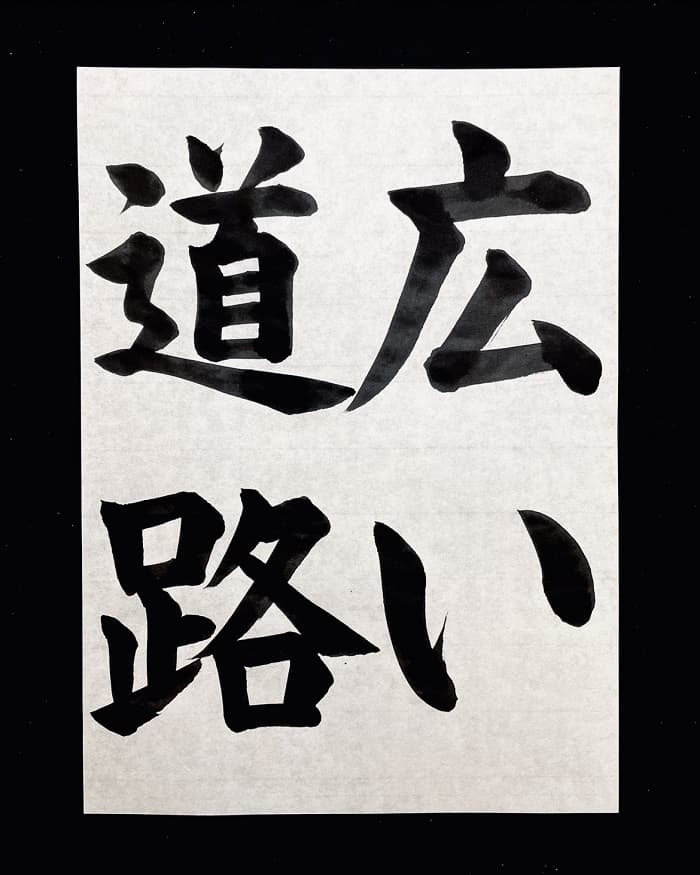 広い
道路